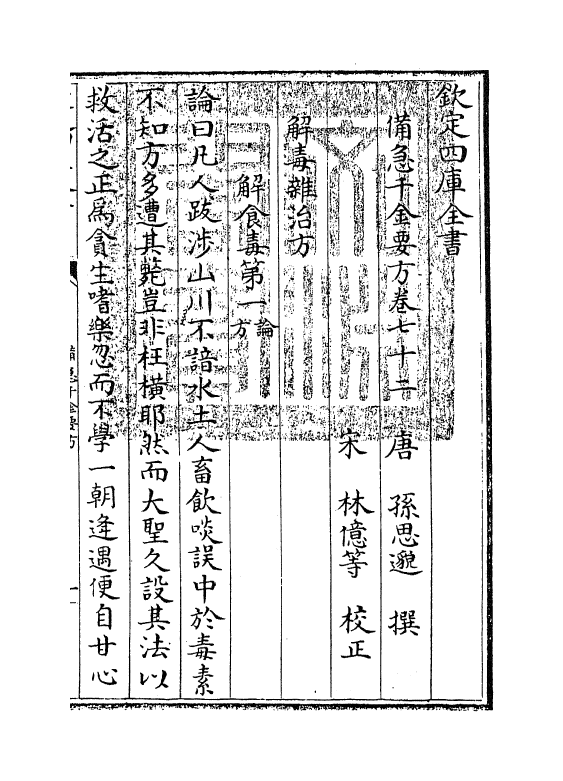 欽定四庫全書
備急千金要方卷七十二 唐 孫思邈 撰
宋 林億等 校正
解毒雜治方
解食毒第一 論 方
論曰凡人跋涉山川不諳水土人畜飲啖誤中於毒素
不知方多遭其斃豈非枉橫耶然而大聖久設其法以
救活之正為貪生嗜樂忽而不學一朝逢遇便自甘心
備急千金要方